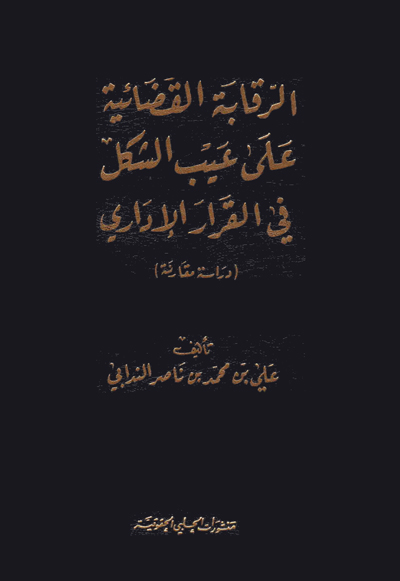 الرقابة القضائية
على عيب الشكل
في القرار الإداري
(دراسة مقارنة)
تأليف
علي بن محمد بن ناصر الندابي
منشورات الحلبي الحقوقية